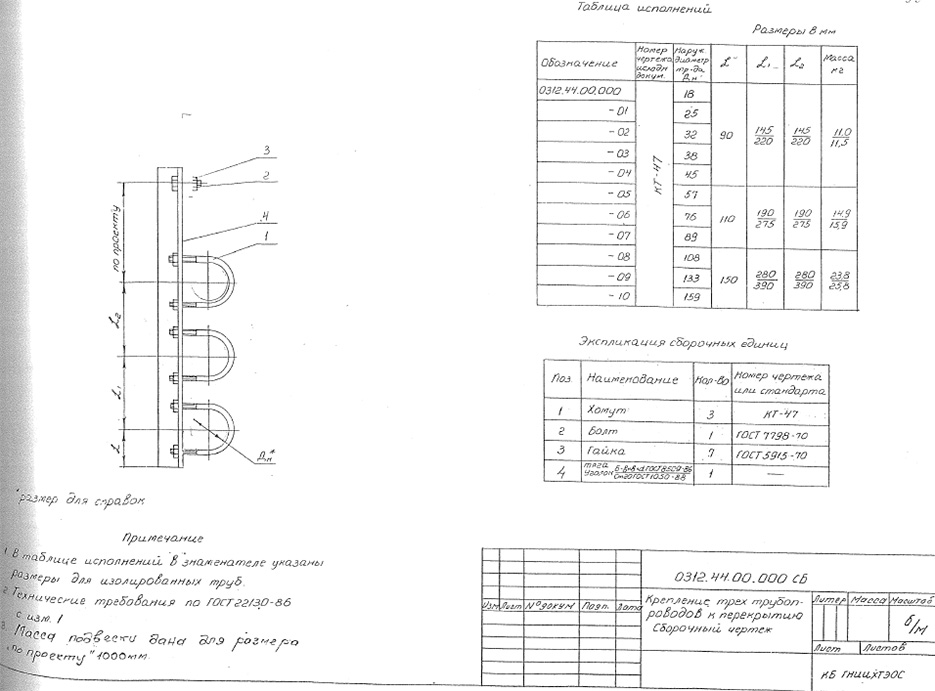 Таблица исполнений
Размеры в мм
Обозначение
Номер чертежа исходн докум.
Наруж. диаметр тр-да Дн
L
L1
L2
Масса кг
0312.44.00.000
КТ-47
18
90
145/220
145/220
11.0/11,5
-01
25
-02
32
-03
38
-04
45
-05
57
110
190/275
190/275
14.9/15,9
-06
76
-07
89
-08
108
150
280/390
280/390
23.8/25,8
-09
133
-10
159
3
2
4
1
по проекту
L2
L1
L
Дн*
*размер для справок
Экспликация сборочных единиц
Поз.
Наименование
Кол-во
Номер чертежа или стандарта
1
Хомут
3
КТ-47
2
Болт
1
ГОСТ 7798-70
3
Гайка
7
ГОСТ 5915-70
4
тяга
Уголок
ГОСТ 8509-86
ГОСТ 1050-88
1
—
Примечание
1. В таблице исполнений в знаменателе указаны
размеры для изолированных труб.
2. Технические требования по ГОСТ 22130-86
с изм. 1
3. Масса подвески дана для размера
"по проекту" 1000мм.
0312.44.00.000 СБ
Изм
Лист
№ докум
Подп.
Дата
Крепление трех трубоп-
роводов к перекрытию
Сборочный чертеж
Литер
Масса
Масштаб
б/м
Лист
Листов
КБ ГНИИХТЭОС